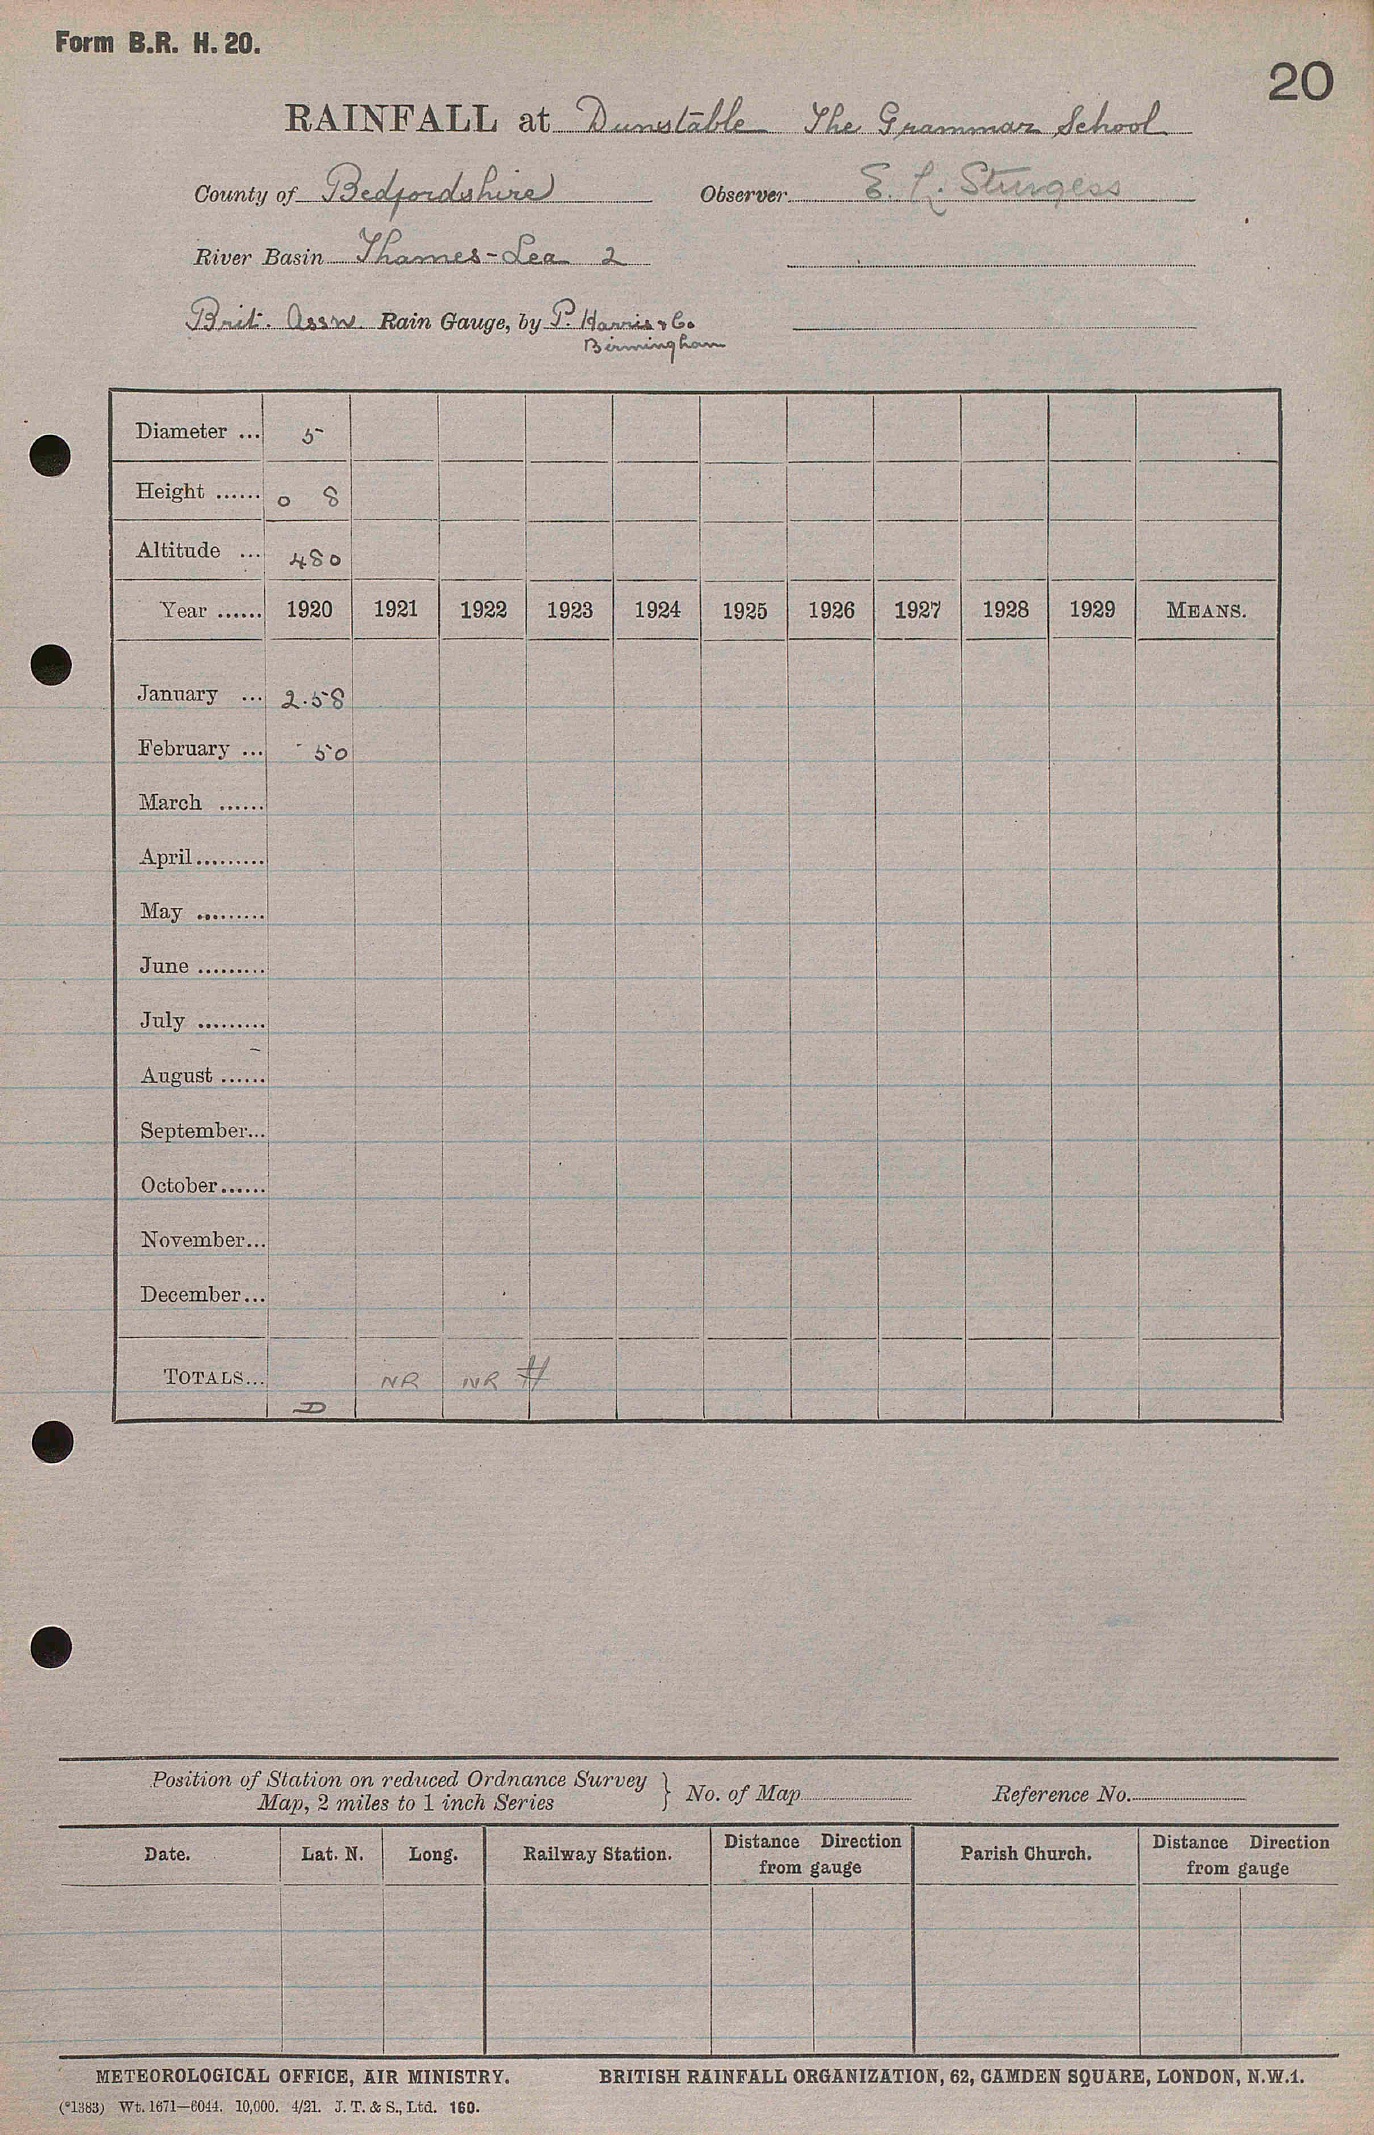 Form B.R. H. 20.
20
RAINFALL at Dunstable The Grammar School
County of Bedfordshire Observer E. L. Sturgess
River Basin Thames-Lea 2
Brit. Assn. Rain Gauge, by P. Harris & Co.
Birmingham
Diameter ... 5
Height ...... 0 8
Altitude ... 480
Year ...... 1920 1921 1922 1923 1924 1925 1926 1927 1928 1929 MEANS.
January ... 2.58
February ... .50
March ......
April.........
May .........
June .........
July .........
August ......
September...
October......
November...
December...
TOTALS... NR NR #
D
Position of Station on reduced Ordnance Survey
Map, 2 miles to 1 inch Series } No. of Map Reference No.
Date. Lat. N. Long. Railway Station. Distance Direction from gauge Parish Church. Distance Direction from gauge
METEOROLOGICAL OFFICE, AIR MINISTRY. BRITISH RAINFALL ORGANIZATION, 62, CAMDEN SQUARE, LONDON, N.W.1.
(*1383) Wt. 1671—6044. 10,000. 4/21. J. T. & S., Ltd. 160.